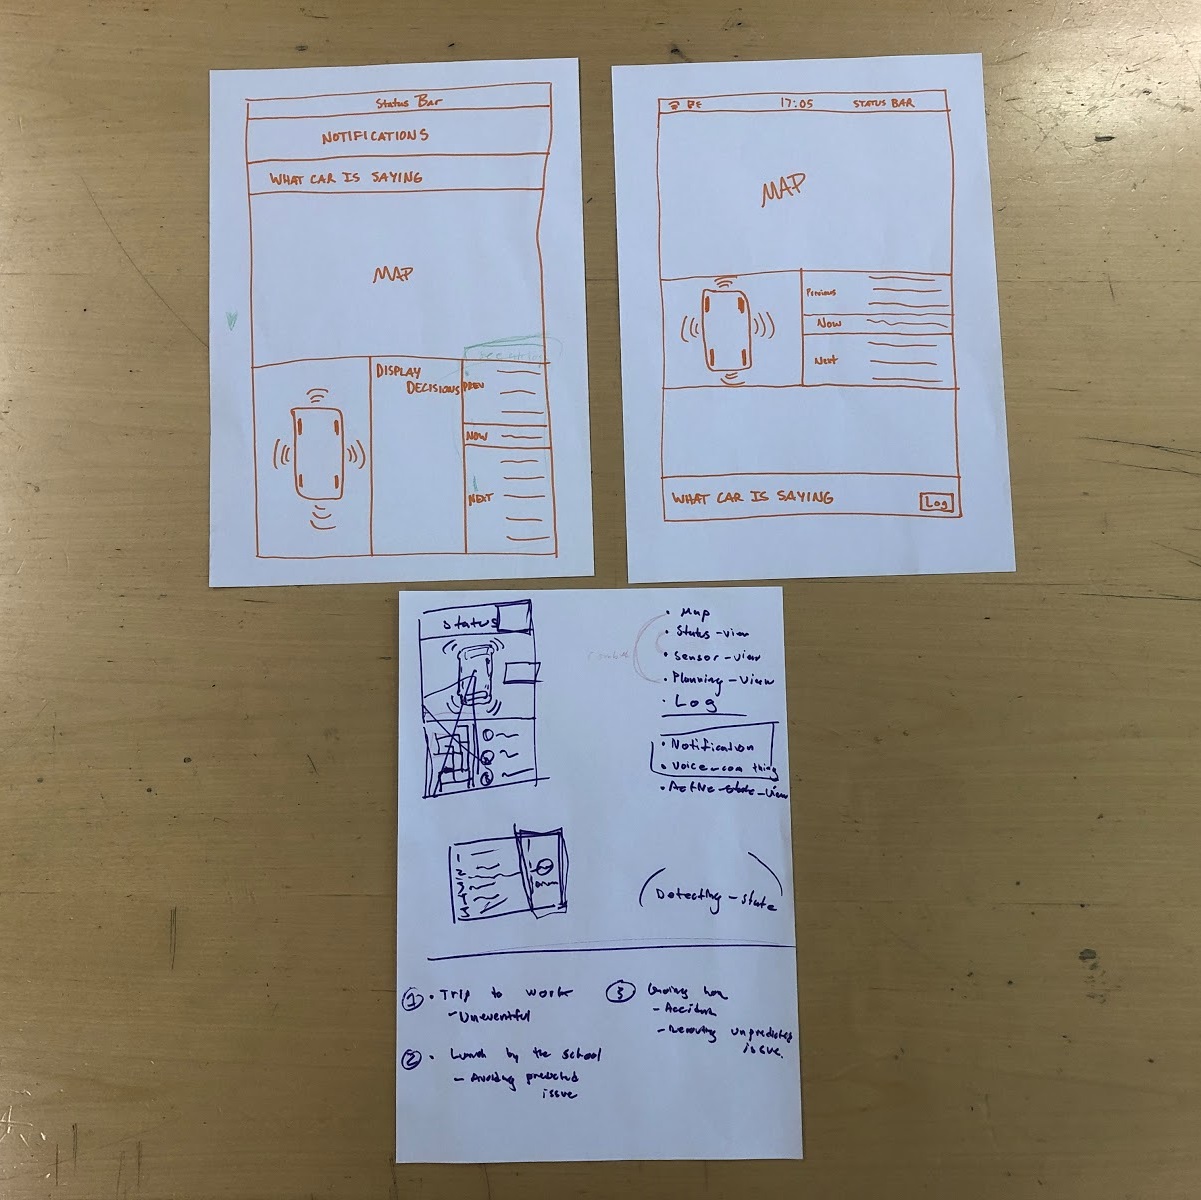 Status Bar
NOTIFICATIONS
WHAT CAR IS SAYING
MAP
DISPLAY
DECISIONS
PREV
NOW
NEXT
17:05 STATUS BAR
MAP
Previous
Now
Next
WHAT CAR IS SAYING
Log
Status
• Map
• Status-view
• Sensor-view
• Planning-view
• Log
• Notification
• Voice-com thing
• Active-state-view
Detecting-state
① • Trip to work
- Uneventful
② • Lunch by the school
- Avoiding predicted
issue
③ Going
- Accident
- Rerouting unpredicted
issue.